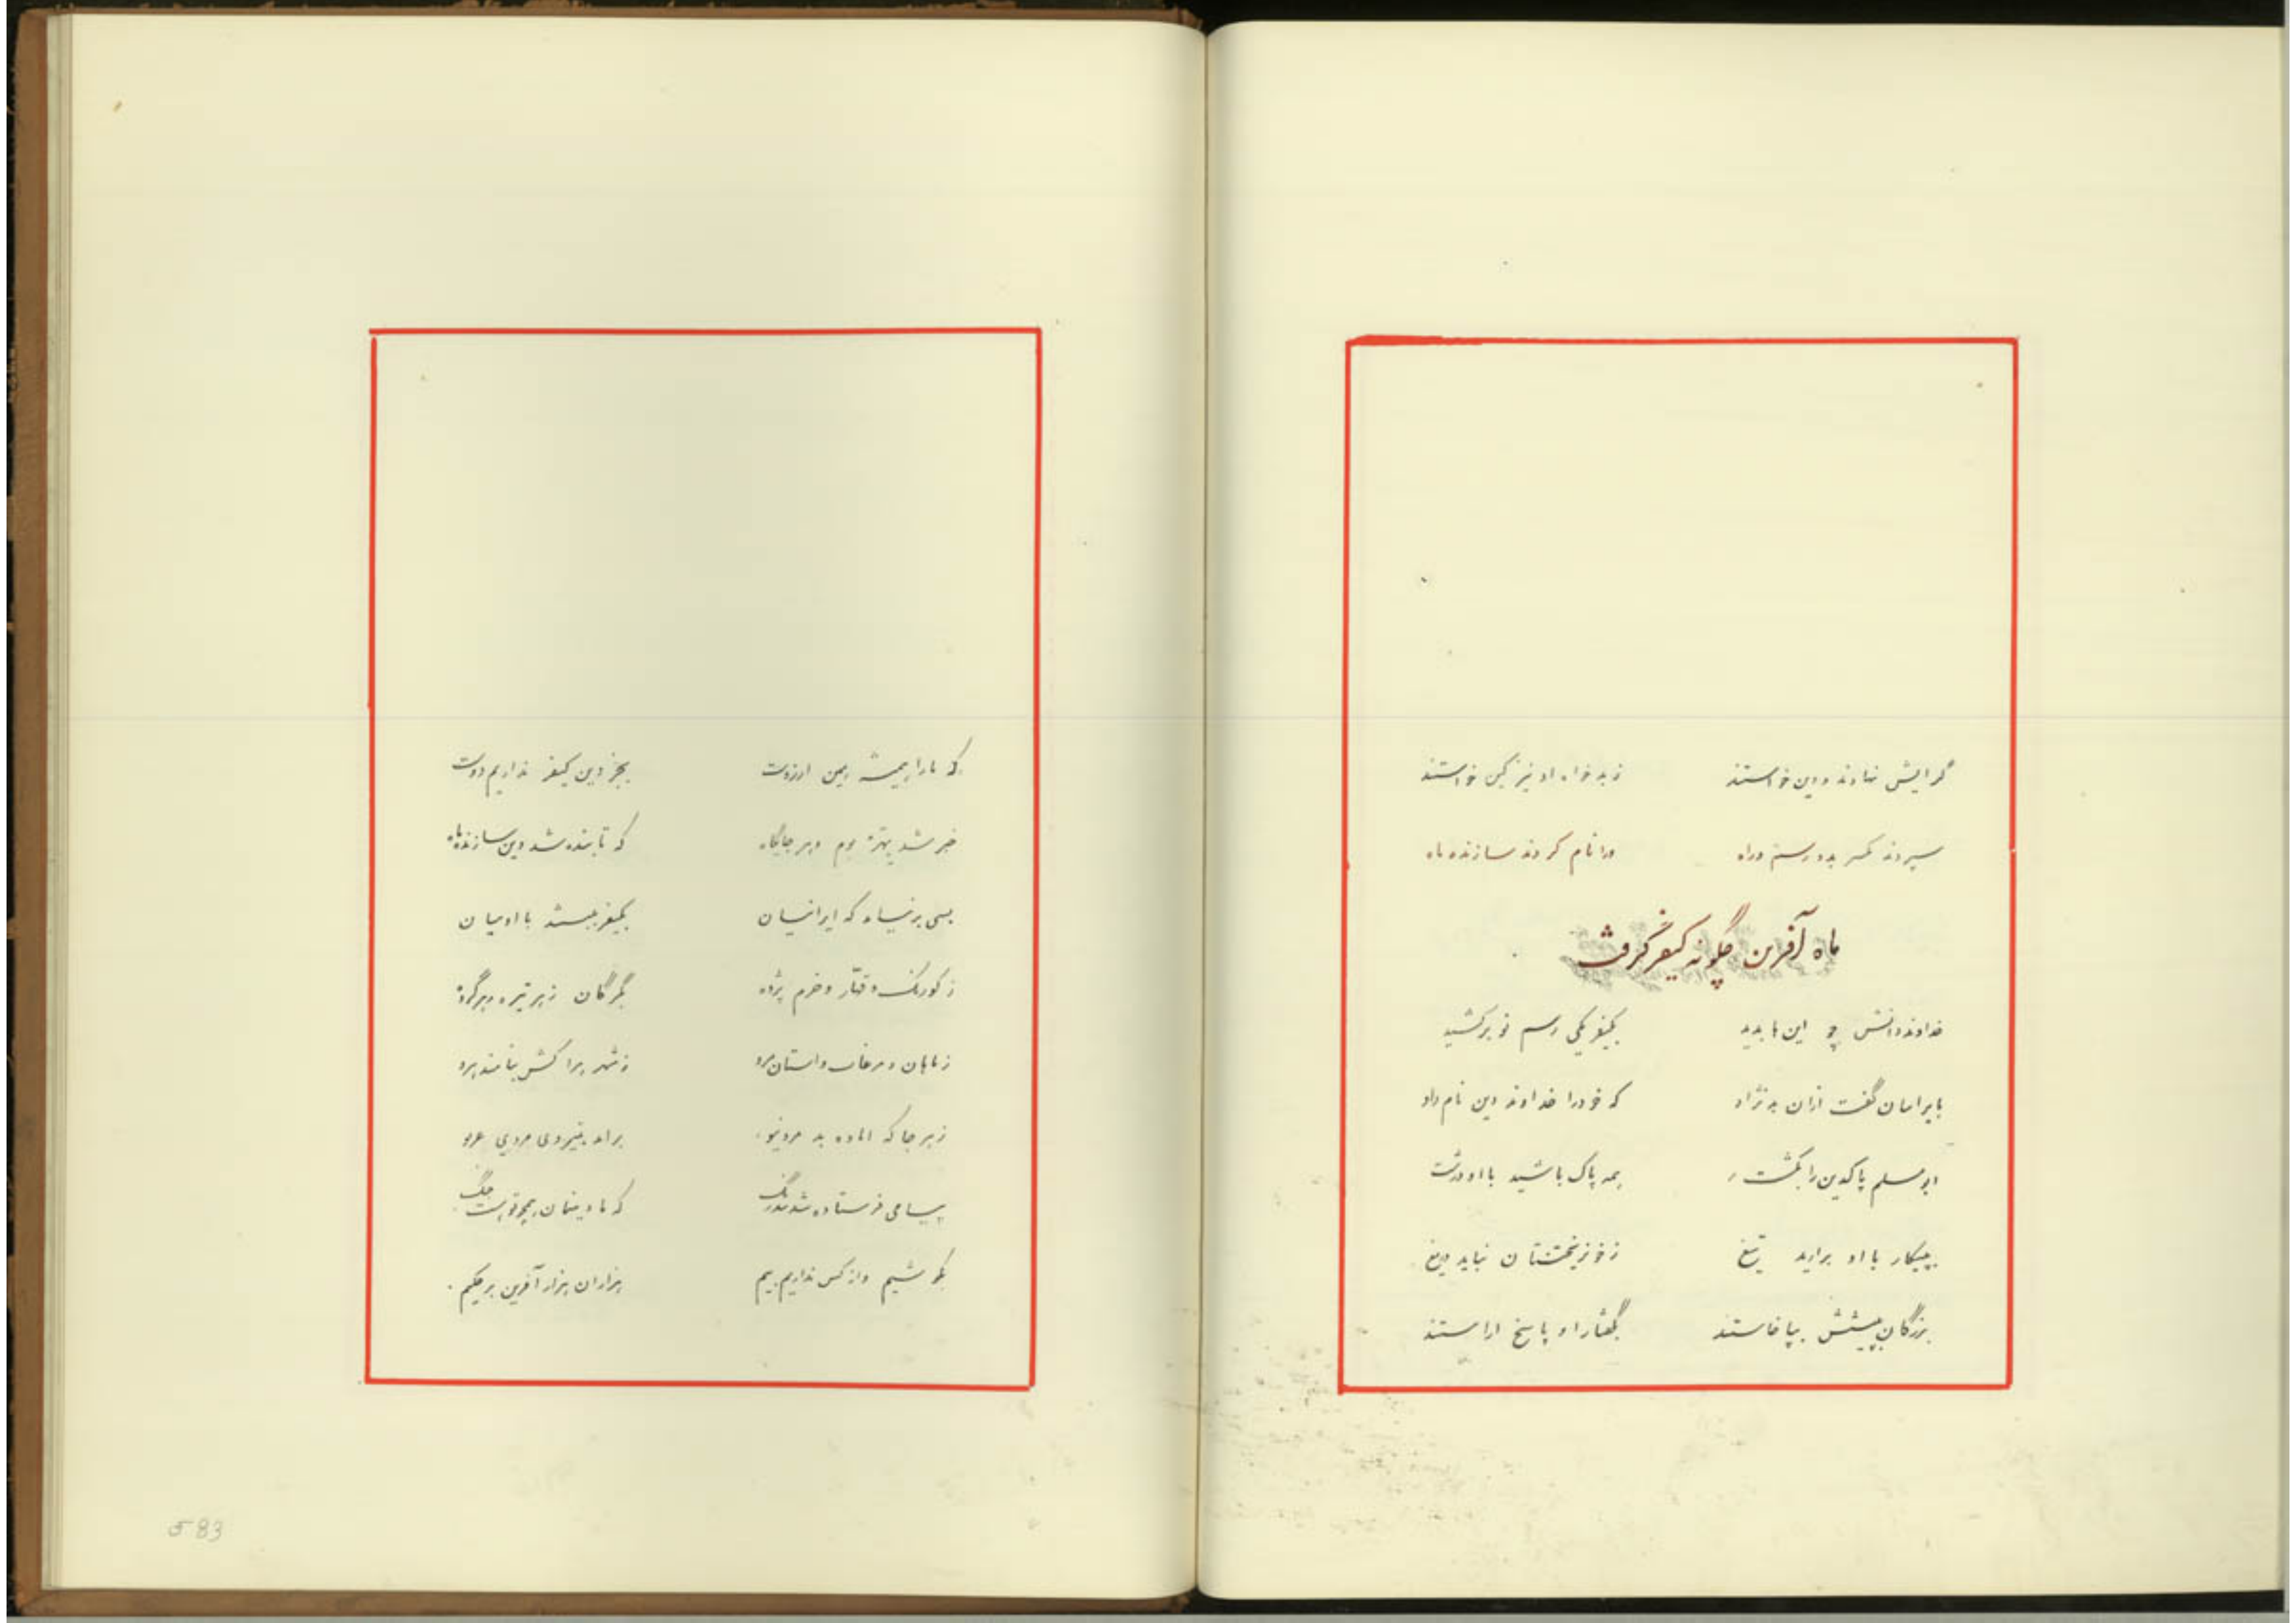 گرایش نهادند و دین خواستند زبدخواه او نیز کین خواستند
سپردند یکسر بدو رسم و راه ورا نام کردند سازنده ماه
ماه آفرین چگونه کیفر گرفت
خداوند دانش چو این ها بدید بکیفر یکی رسم نو برکشید
بایرانیان گفت ازان بد نژاد که خود را خداوند دین نام داد
ابومسلم پاکدین را بکشت همه پاک باشید با او درشت
به پیکار با او برارید تیغ زخونریختنتان نباید دریغ
بزرگان به پیشش بپا خاستند بگفتار او پاسخ اراستند
که ما را همیشه همین ارزوست بجز دین کیفر نداریم دوست
خبر شد بهر بوم و هر جایگاه که تابنده شد دین سازنده ماه
بسی برنیامد که ایرانیان بکیفر ببستند با او میان
ز و خرم پژوه بگرگان زهر تیره و هر گروه
زماهان و مرغاب و استان مرو زشهر
زهر جا که اماده بد مرد نیو برامد بنیروی مردی غریو
پیامی فرستاده شد که ما دشمنان
بکوشیم و از کس نداریم بیم هزاران هزار آفرین بر حکیم
583